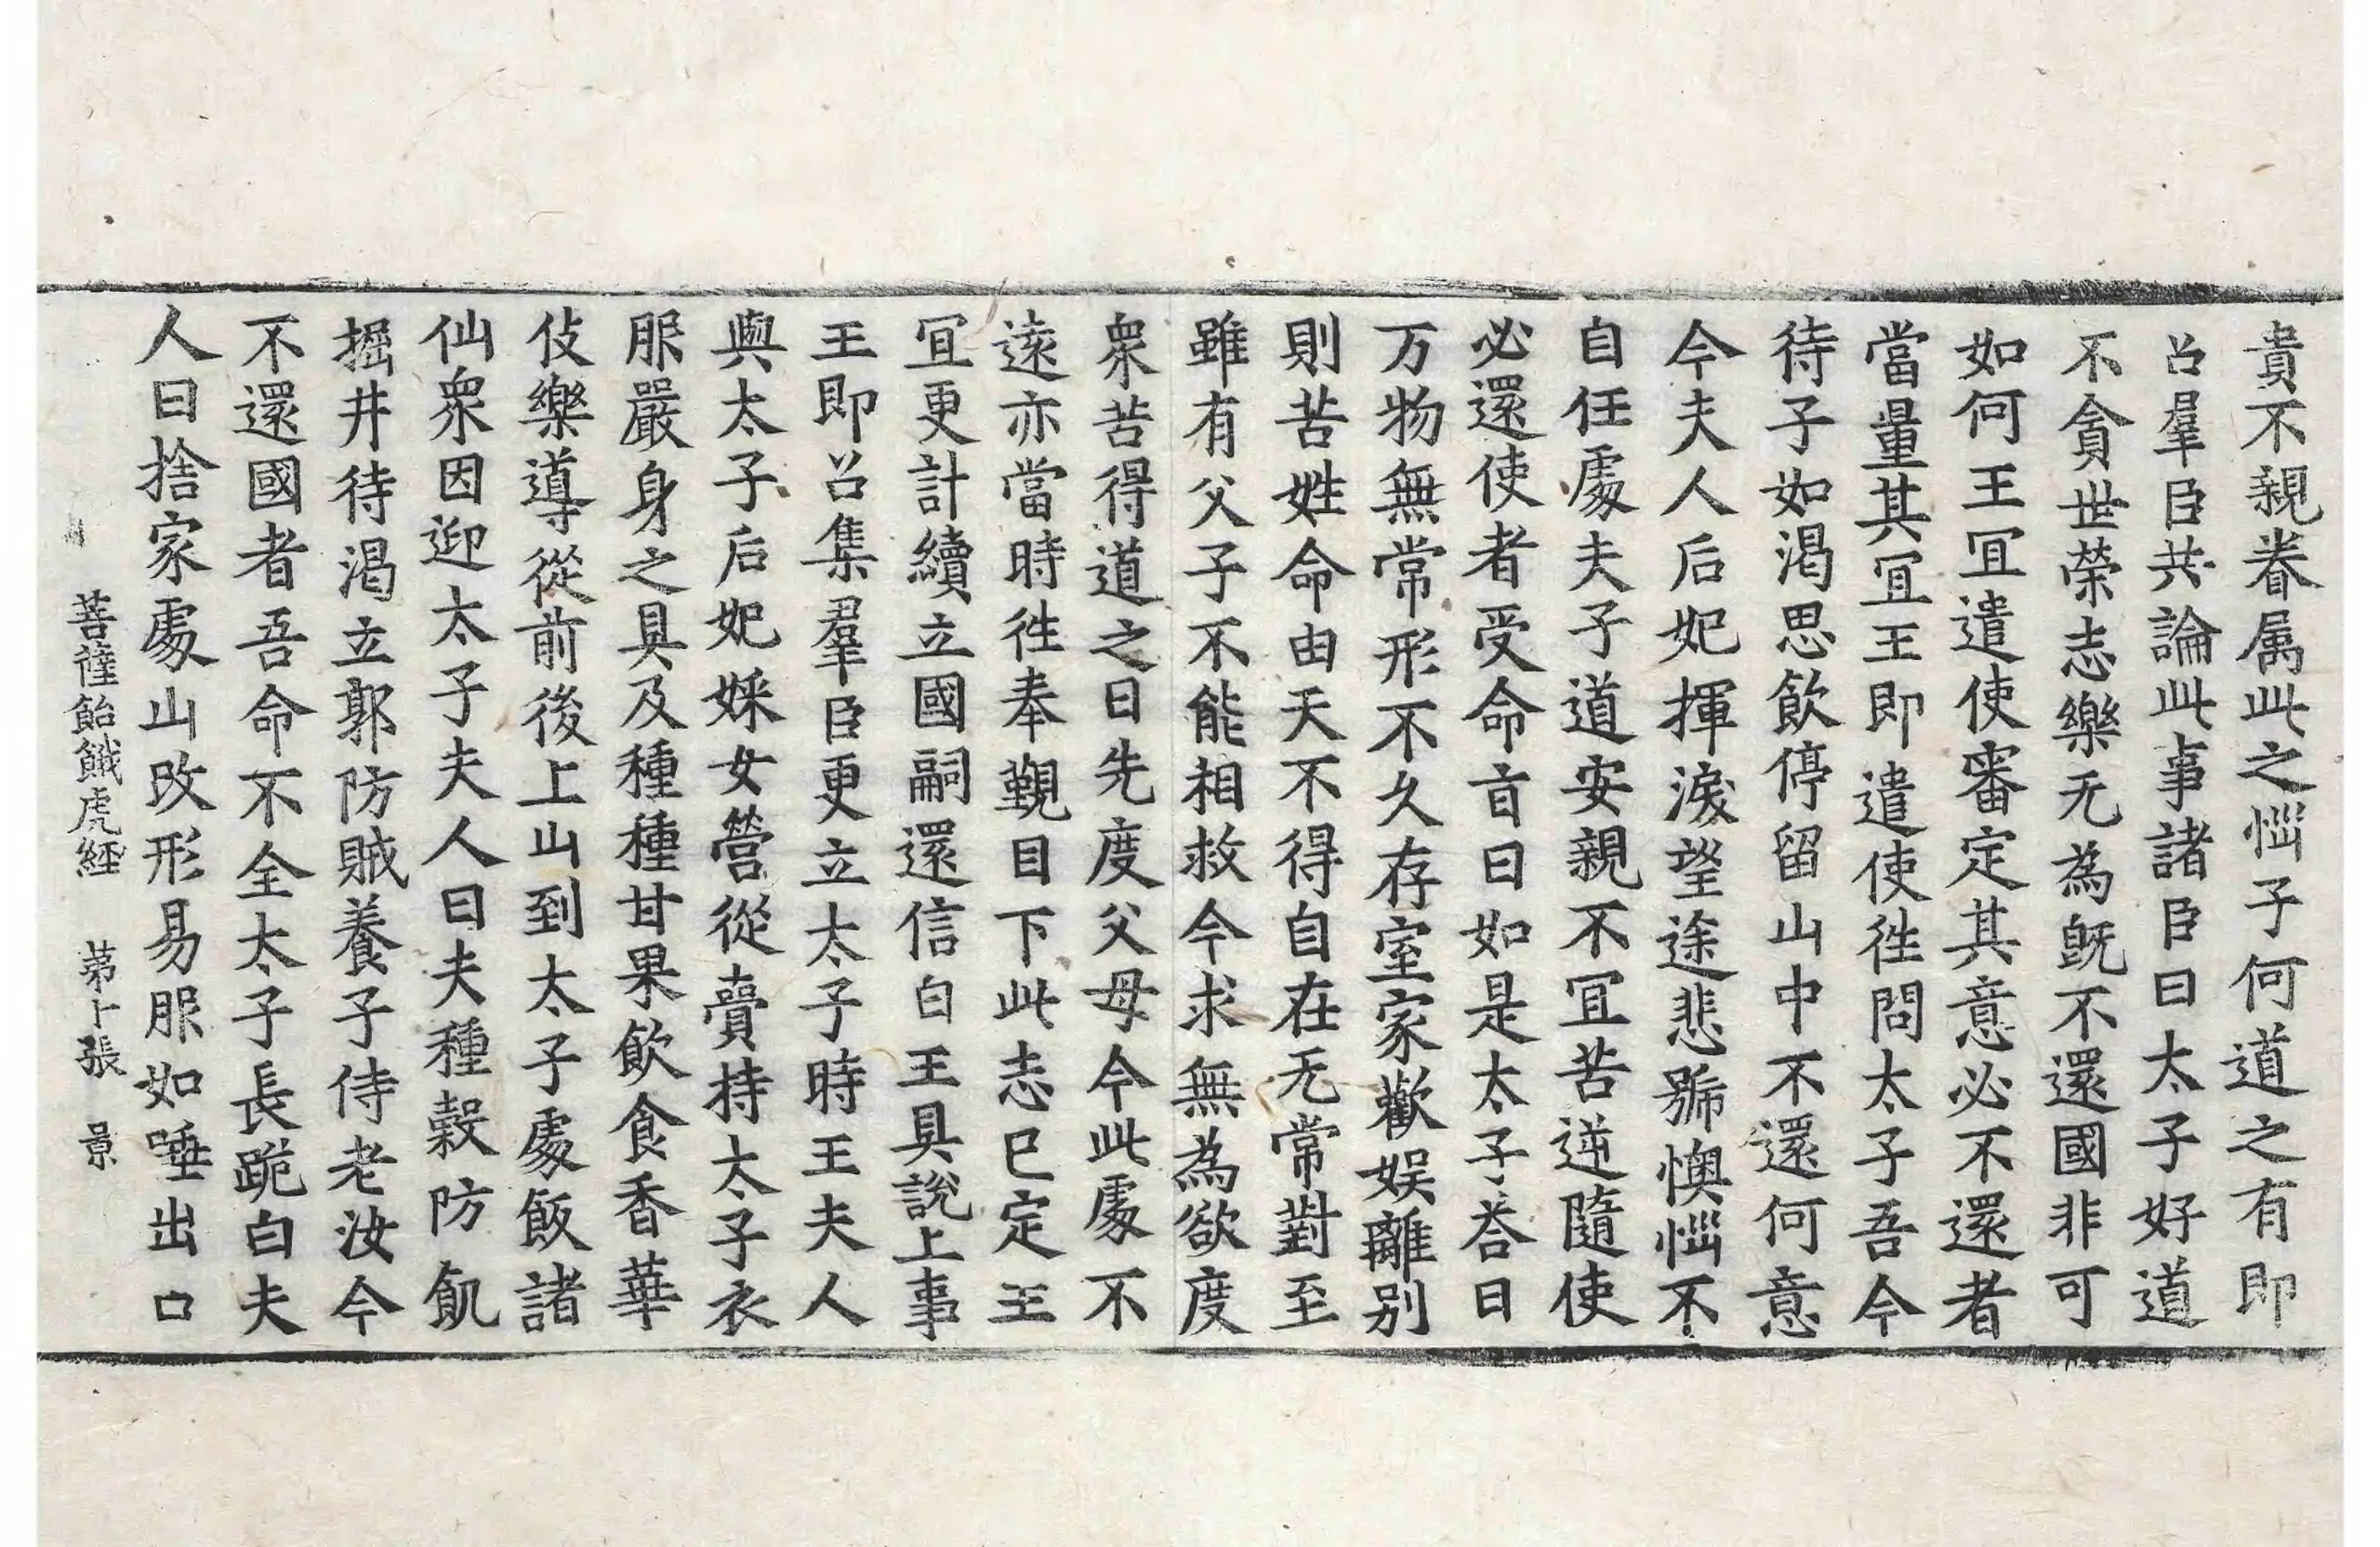 貴不親眷属此之惱子何道之有即
召羣臣共論此事諸臣曰太子好道
不貪世榮志樂无為旣不還國非可
如何王冝遣使審定其意必不還者
當量其冝王即遣使徃問太子吾今
待子如渴思飲停留山中不還何意
今夫人后妃揮淚望途悲號懊惱不
自任處夫子道安親不冝苦逆隨使
必還使者受命旨曰如是太子荅曰
万物無常形不久存室家歡娛離別
則苦姓命由天不得自在无常對至
雖有父子不能相救今求無為欲度
衆苦得道之日先度父母今此處不
遠亦當時徃奉覲目下此志已定王
冝更計續立國嗣還信白王具說上事
王即召集羣臣更立太子時王夫人
與太子后妃婇女營從賷持太子衣
服嚴身之具及種種甘果飲食香華
伎樂導從前後上山到太子處飯諸
仙衆因迎太子夫人曰夫種穀防飢
掘井待渴立郭防賊養子侍老汝今
不還國者吾命不全太子長跪白夫
人曰捨家處山改形易服如唾出口
菩薩飴餓虎經 苐十張 景